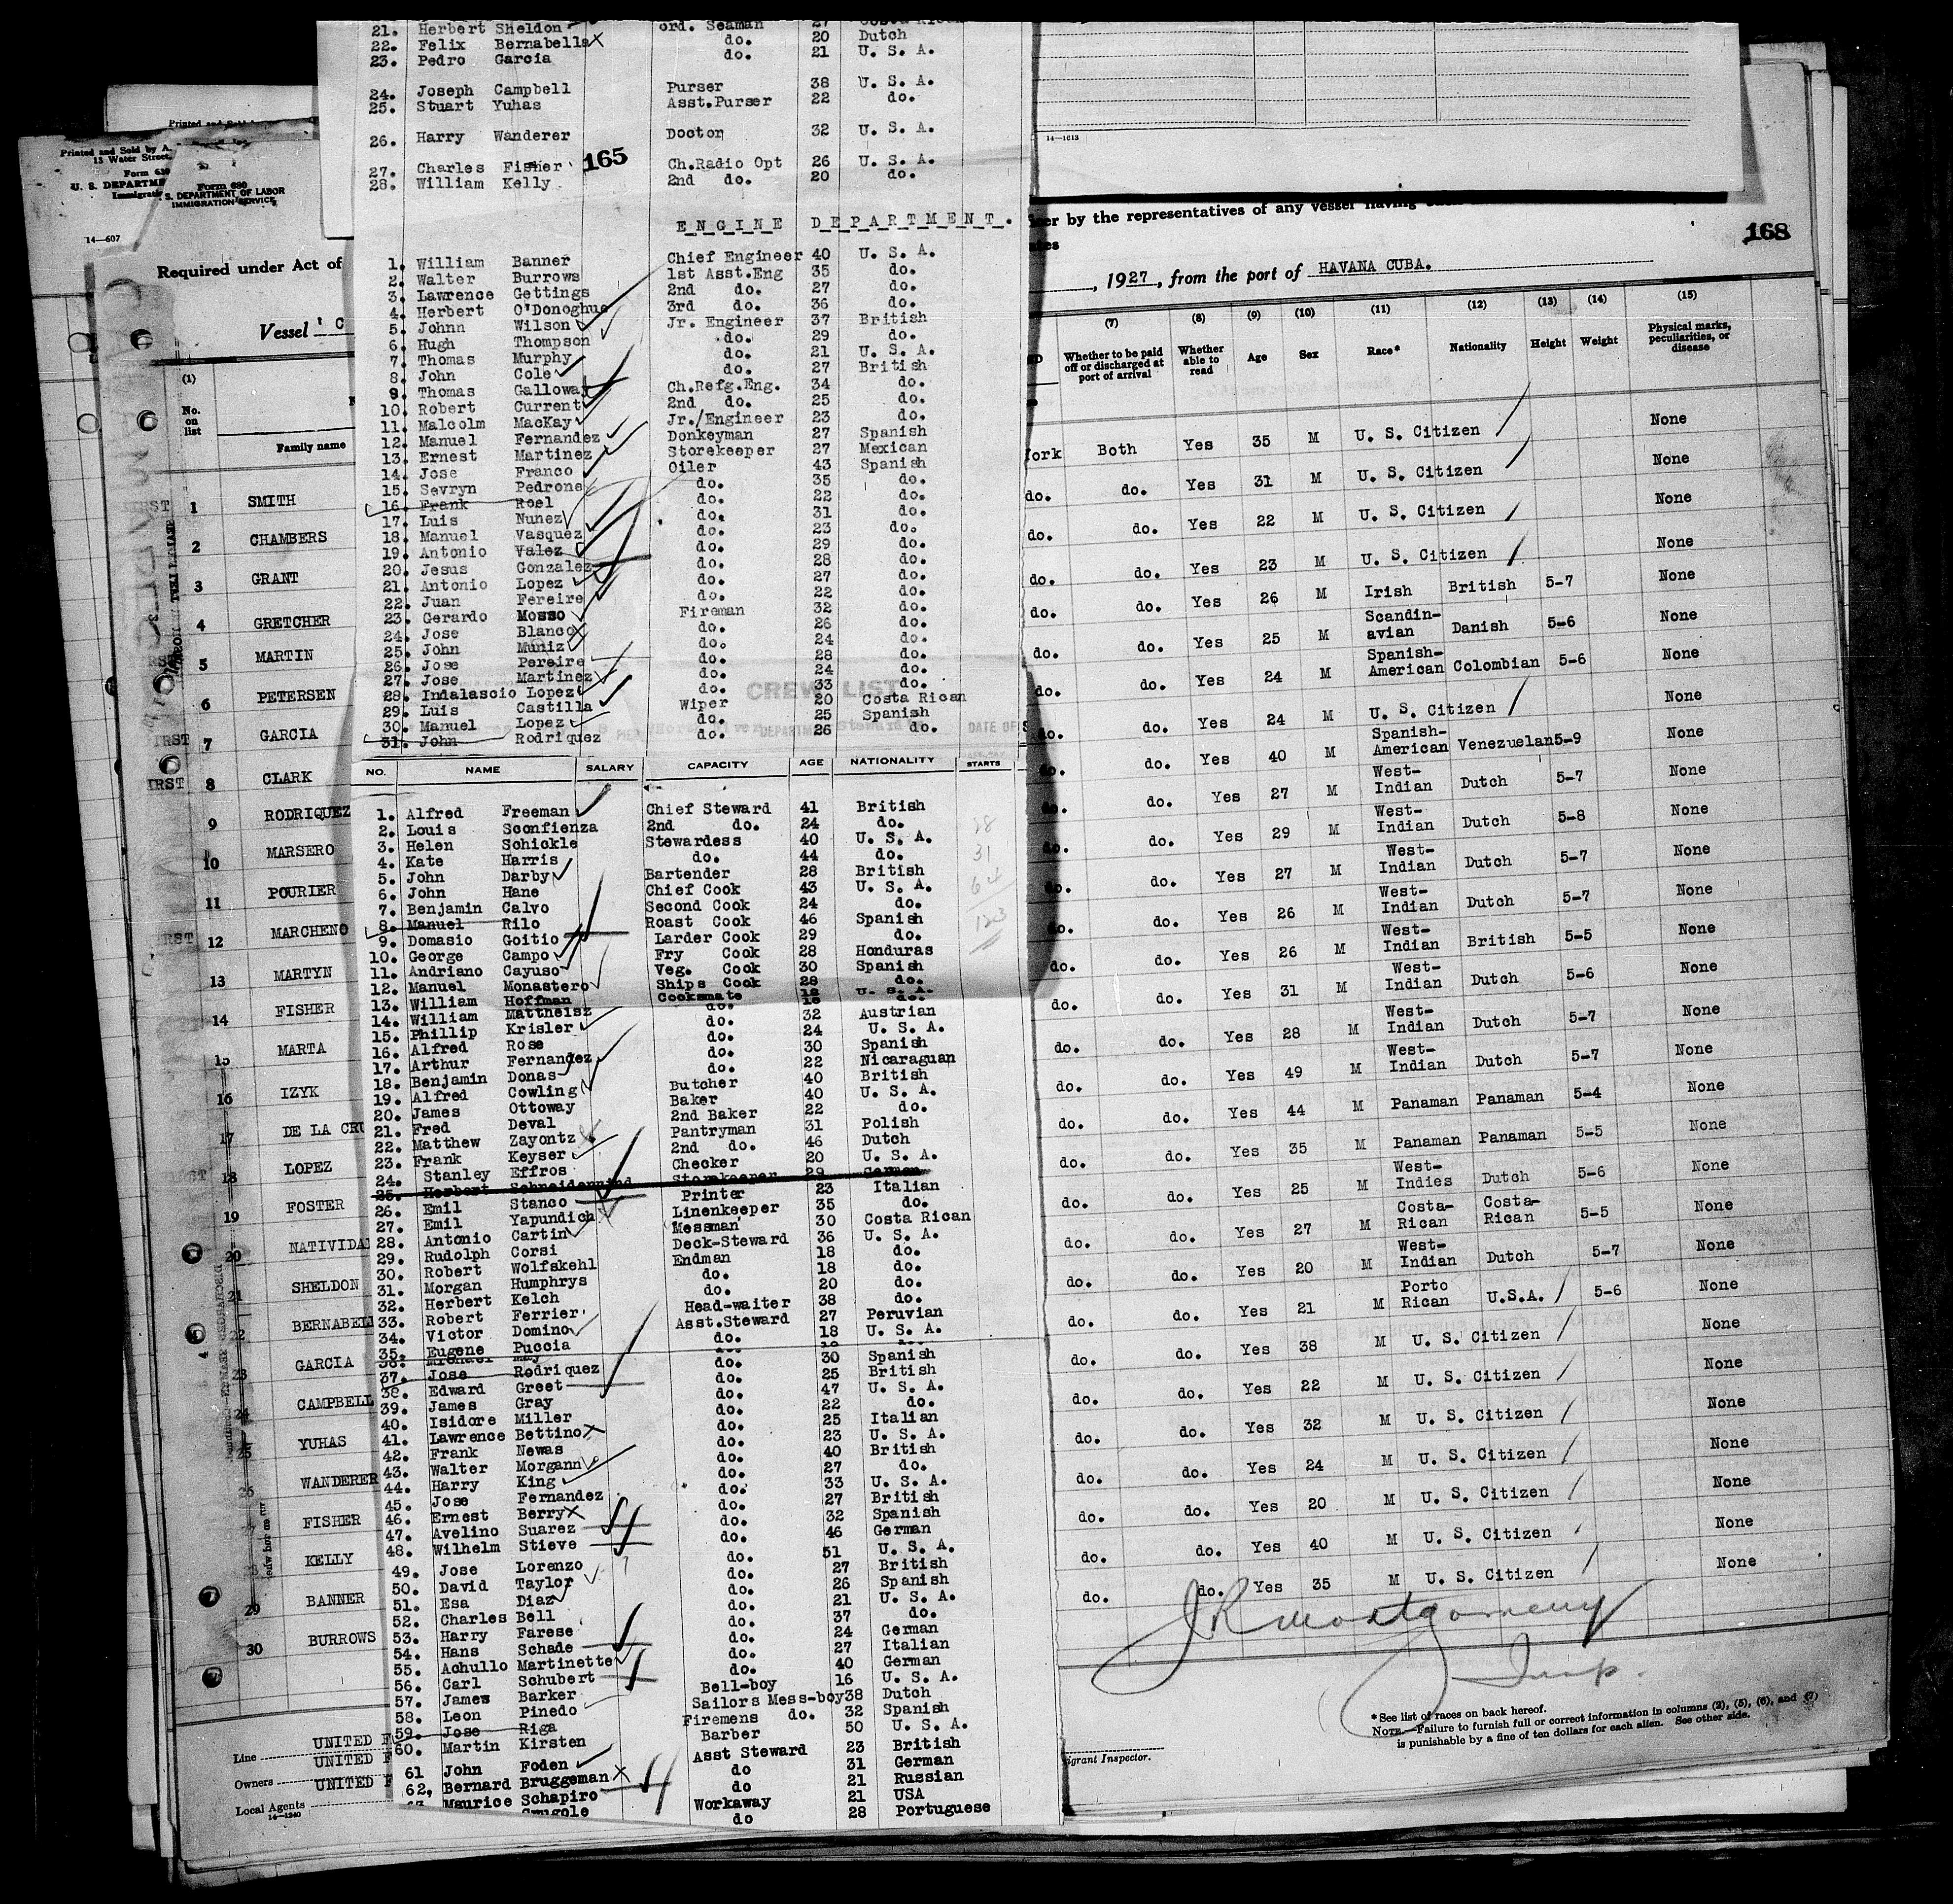 21. Herbert Sheldon ord. Seaman 27 Costa Rican
22. Felix Bernabella do. 20 Dutch
23. Pedro Garcia do. 21 U. S. A.
24. Joseph Campbell Purser 38 U. S. A.
25. Stuart Yuhas Asst.Purser 22 do.
26. Harry Wanderer Doctor 32 U. S. A.
27. Charles Fisher Ch.Radio Opt 26 U. S. A.
28. William Kelly 2nd do. 20 do.
165
ENGINE DEPARTMENT.
1. William Banner Chief Engineer 40 U. S. A.
2. Walter Burrows 1st Asst.Eng 35 do.
3. Lawrence Gettings 2nd do. 27 do.
4. Herbert O'Donoghue 3rd do. 36 do.
5. Johnn Wilson Jr. Engineer 37 British
6. Hugh Thompson do. 29 do.
7. Thomas Murphy do. 21 U. S. A.
8. John Cole do. 27 British
9. Thomas Galloway Ch.Refg.Eng. 34 do.
10. Robert Current 2nd do. 25 do.
11. Malcolm MacKay Jr./Engineer 23 do.
12. Manuel Fernandez Donkeyman 27 Spanish
13. Ernest Martinez Storekeeper 27 Mexican
14. Jose Franco Oiler 43 Spanish
15. Sevryn Pedrona do. 35 do.
16. Frank Roel do. 22 do.
17. Luis Nunez do. 31 do.
18. Manuel Vasquez do. 23 do.
19. Antonio Valez do. 29 do.
20. Jesus Gonzalez do. 28 do.
21. Antonio Lopez do. 27 do.
22. Juan Fereire do. 22 do.
23. Gerardo Mosso Fireman 32 do.
24. Jose Blanco do. 26 do.
25. John Muniz do. 24 do.
26. Jose Pereire do. 28 do.
27. Jose Martinez do. 24 do.
28. Indalascio Lopez do. 33 do.
29. Luis Castilla Wiper 20 Costa Rican
30. Manuel Lopez do. 25 Spanish
31. John Rodriquez do. 26 do.
CREW LIST
DEPARTMENT Steward DATE OF S
NO. NAME SALARY CAPACITY AGE NATIONALITY STARTS
1. Alfred Freeman Chief Steward 41 British
2. Louis Sconfienza 2nd do. 24 do.
3. Helen Schickle Stewardess 40 U. S. A.
4. Kate Harris do. 44 do.
5. John Darby Bartender 28 British
6. John Hane Chief Cook 43 U. S. A.
7. Benjamin Calvo Second Cook 24 do.
8. Manuel Rilo Roast Cook 46 Spanish
9. Domasio Goitio Larder Cook 29 do.
10. George Campo Fry Cook 28 Honduras
11. Andriano Cayuso Veg. Cook 30 Spanish
12. Manuel Monastero Ships Cook 28 do.
13. William Hoffman Cooksmate 18 U. S. A.
14. William Mattheisz do. 18 do.
15. Phillip Krisler do. 32 Austrian
16. Alfred Rose do. 24 U. S. A.
17. Arthur Fernandez do. 30 Spanish
18. Benjamin Donas do. 22 Nicaraguan
19. Alfred Cowling Butcher 40 British
20. James Ottoway Baker 40 U. S. A.
21. Fred Deval 2nd Baker 22 do.
22. Matthew Zayontz Pantryman 31 Polish
23. Frank Keyser 2nd do. 46 Dutch
24. Stanley Effros Checker 20 U. S. A.
25. Herbert Schneiderwind Storekeeper 29 German
26. Emil Stanco Printer 23 Italian
27. Emil Yapundich Linenkeeper 35 do.
28. Antonio Cartin Messman 30 Costa Rican
29. Rudolph Corsi Deck-Steward 36 U. S. A.
30. Robert Wolfskehl Endman 18 do.
31. Morgan Humphrys do. 18 do.
32. Herbert Kelch do. 20 do.
33. Robert Ferrier Head-waiter 38 do.
34. Victor Domino Asst.Steward 27 Peruvian
35. Eugene Puccia do. 18 U. S. A.
36. Michael May
37. Jose Rodriquez do. 30 Spanish
38. Edward Greet do. 25 British
39. James Gray do. 47 U. S. A.
40. Isidore Miller do. 22 do.
41. Lawrence Bettino do. 25 Italian
42. Frank Newas do. 23 U. S. A.
43. Walter Morgann do. 40 British
44. Harry King do. 27 do.
45. Jose Fernandez do. 33 U. S. A.
46. Ernest Berry do. 27 British
47. Avelino Suarez do. 32 Spanish
48. Wilhelm Stieve do. 46 German
49. Jose Lorenzo do. 51 U. S. A.
50. David Taylor do. 27 British
51. Esa Diaz do. 26 Spanish
52. Charles Bell do. 21 U. S. A.
53. Harry Farese do. 37 do.
54. Hans Schade do. 24 German
55. Achullo Martinette do. 27 Italian
56. Carl Schubert do. 40 German
57. James Barker Bell-boy 16 U. S. A.
58. Leon Pinedo Sailors Mess-boy 38 Dutch
59. Jose Riga Firemens do. 32 Spanish
60. Martin Kirsten Barber 50 U. S. A.
61 John Foden Asst Steward 23 British
62, Bernard Bruggeman do 31 German
Maurice Schapiro do 21 Russian
Workaway 21 USA
do 28 Portuguese
28
31
64
123
Printed and Sold by A.
13 Water Street,
Form 630
U. S. DEPARTME
Form 680
S. DEPARTMENT OF LABOR
IMMIGRATION SERVICE
14—607
14—1613
Required under Act of
by the representatives of any vessel having
168
Vessel
C
, 1927, from the port of HAVANA CUBA.
(1) (7) (8) (9) (10) (11) (12) (13) (14) (15)
No. on list
Family name
Whether to be paid off or discharged at port of arrival
Whether able to read
Age Sex Race* Nationality Height Weight
Physical marks, peculiarities, or disease
1 SMITH York Both Yes 35 M U. S. Citizen None
2 CHAMBERS do. do. Yes 31 M U. S. Citizen None
3 GRANT do. do. Yes 22 M U. S. Citizen None
4 GRETCHER do. do. Yes 23 M U. S. Citizen None
5 MARTIN do. do. Yes 26 M Irish British 5-7 None
6 PETERSEN do. do. Yes 25 M Scandin-avian Danish 5-6 None
7 GARCIA do. do. Yes 24 M Spanish-American Colombian 5-6 None
8 CLARK do. do. Yes 24 M U. S. Citizen None
9 RODRIQUEZ do. do. Yes 40 M Spanish-American Venezuelan 5-9 None
10 MARSERO do. do. Yes 27 M West-Indian Dutch 5-7 None
11 POURIER do. do. Yes 29 M West-Indian Dutch 5-8 None
12 MARCHENO do. do. Yes 27 M West-Indian Dutch 5-7 None
13 MARTYN do. do. Yes 26 M West-Indian Dutch 5-7 None
14 FISHER do. do. Yes 26 M West-Indian British 5-5 None
15 MARTA do. do. Yes 31 M West-Indian Dutch 5-6 None
16 IZYK do. do. Yes 28 M West-Indian Dutch 5-7 None
17 DE LA CRU do. do. Yes 49 M West-Indian Dutch 5-7 None
18 LOPEZ do. do. Yes 44 M Panaman Panaman 5-4 None
19 FOSTER do. do. Yes 35 M Panaman Panaman 5-5 None
20 NATIVIDA do. do. Yes 25 M West-Indies Dutch 5-6 None
21 SHELDON do. do. Yes 27 M Costa-Rican Costa-Rican 5-5 None
22 BERNABEL do. do. Yes 20 M West-Indian Dutch 5-7 None
23 GARCIA do. do. Yes 21 M Porto Rican U.S.A. 5-6 None
24 CAMPBELL do. do. Yes 38 M U. S. Citizen None
25 YUHAS do. do. Yes 22 M U. S. Citizen None
26 WANDERER do. do. Yes 32 M U. S. Citizen None
FISHER do. do. Yes 24 M U. S. Citizen None
KELLY do. do. Yes 20 M U. S. Citizen None
29 BANNER do. do. Yes 40 M U. S. Citizen None
30 BURROWS do. do. Yes 35 M U. S. Citizen None
J R Montgomery
Insp.
Line UNITED F
Owners UNITED F
Local Agents UNITED F
14—1240
Immigrant Inspector.
*See list of races on back hereof.
NOTE.—Failure to furnish full or correct information in columns (2), (5), (6), and (7)
is punishable by a fine of ten dollars for each alien. See other side.